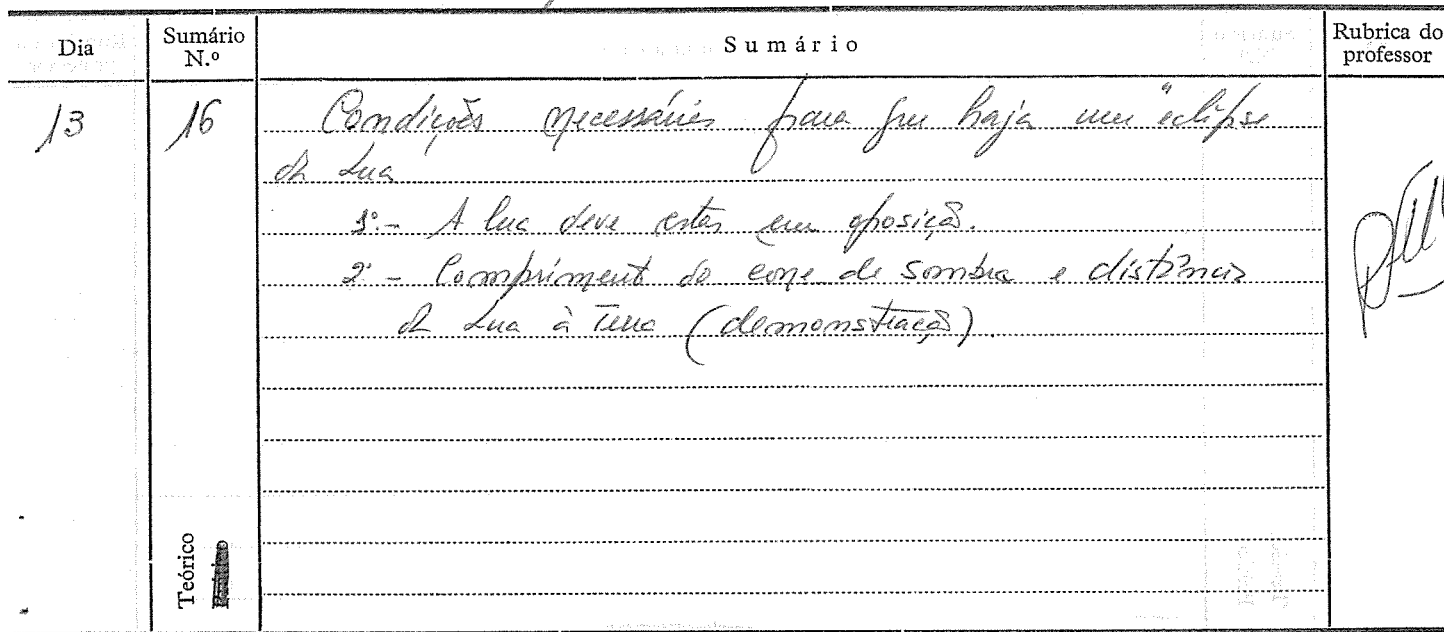 Dia
Sumário N.º
Sumário
Rubrica do professor
13
16
Condições necessárias para que haja um eclipse
da Lua
1º - A lua deve estar em oposição.
2º - Comprimento do cone de sombra e distância
da Lua à Terra (demonstração)
Teórico